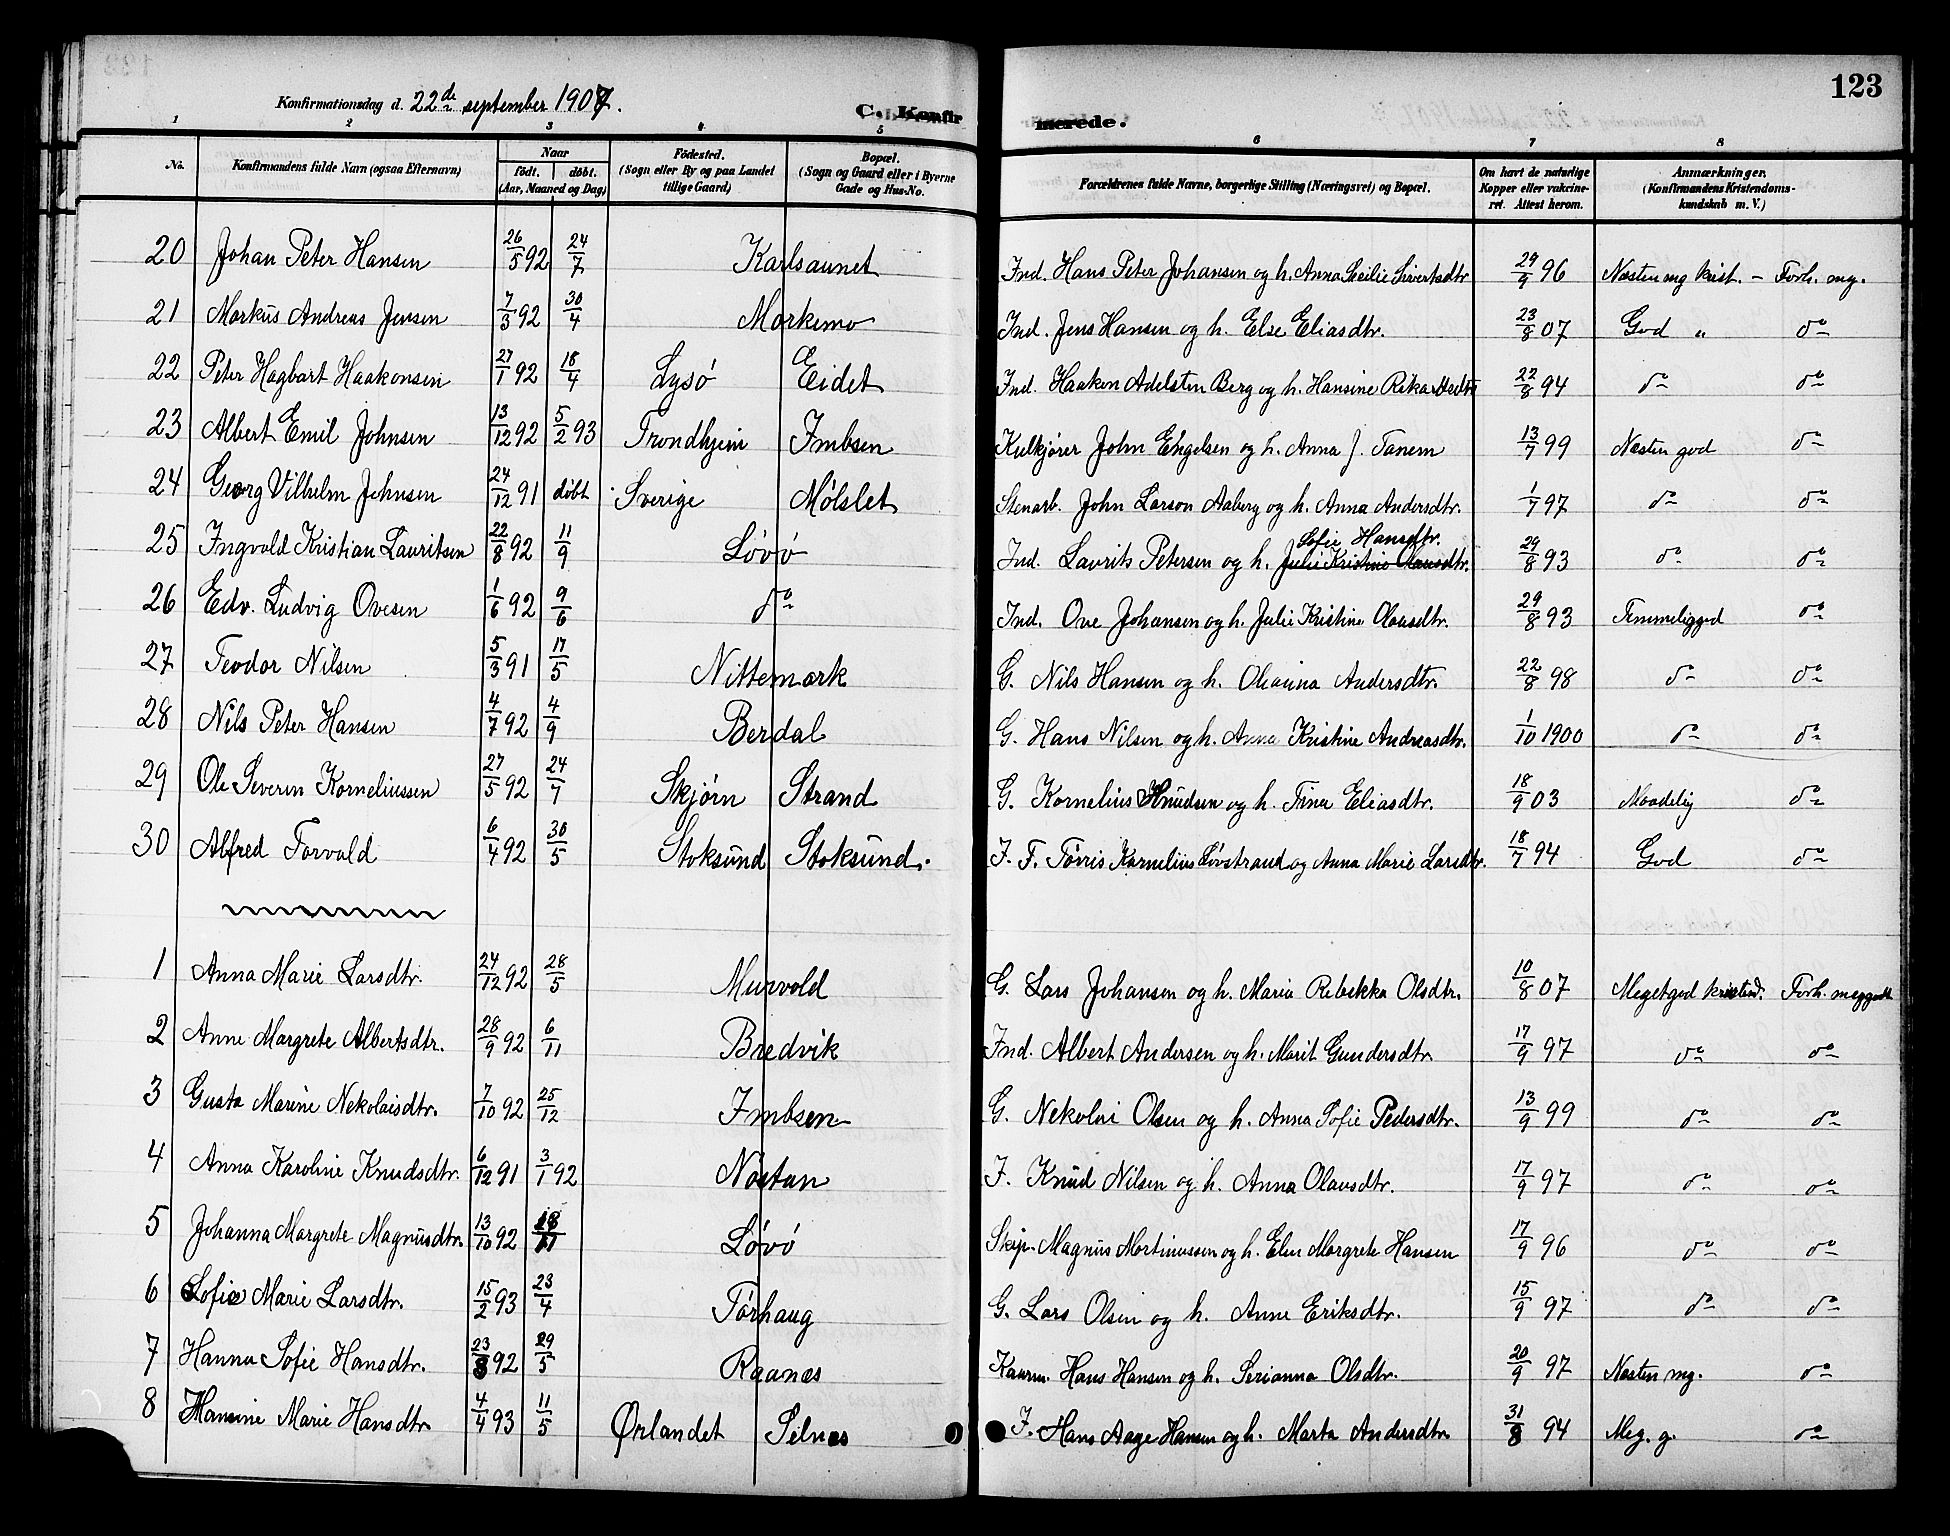 123
Konfirmationsdag d. 22de september 1907.
C. Konfirmerede.
1 2 3 4 5 6 7 8
No. Konfirmandens fulde Navn (ogsaa Efternavn) Naar födt. döbt. (Aar, Maaned og Dag) Födested. (Sogn eller By og paa Landet tillige Gaard) Bopæl. (Sogn og Gaard eller i Byerne Gade og Hus-No. Forældrenes fulde Navne, borgerlige Stilling (Næringsvei) og Bopæl. Om havt de naturlige Kopper eller vakcineret. Attest herom. Anmærkninger. (Konfirmandens Kristendomskundskab m. V.)
20 Johan Peter Hansen 26/5 92 24/7 Karlsaunet Ind. Hans Peter Johansen og h. Anna Secilie Sivertsdtr 29/9 96 Næsten mg krist. – Forh. mg.
21 Markus Andreas Jensen 7/3 92 30/4 Morkemo Ind. Jens Hansen og h. Else Eliasdtr. 23/8 07 God " do
22 Peter Hagbart Haakonsen 27/1 92 18/4 Lysö Eidet Ind. Haakon Adelsten Berg og h. Hansine Rikardsdtr 22/8 94 do do
23 Albert Emil Johnsen 13/12 92 5/2 93 Trondhjem Imbsen Kulkjører John Engelsen og h. Anna J. Tanem 13/7 99 Næsten god do
24 Georg Vilhelm Johnsen 24/12 91 døbt Sverige Mølslet Stenarb. John Larson Aaberg og h. Anna Andersdtr. 1/7 97 do do
25 Ingvald Kristian Lauritsen 22/8 92 11/9 Løvø Ind. Laurits Petersen og h. Julie Kristine Olausdtr. Sofie Hansdtr. 29/8 93 do do
26 Edv. Ludvig Ovesen 1/6 92 9/6 do Ind. Ove Johansen og h. Julie Kristine Olausdtr. 29/8 93 Temmelig god do
27 Teodor Nilsen 5/3 91 17/5 Nittemark G. Nils Hansen og h. Oliarina Andersdtr. 22/8 98 do do
28 Nils Peter Hansen 4/7 92 4/9 Berdal G. Hans Nilsen og h. Anna Kristine Andreasdtr. 1/10 1900 do do
29 Ole Severin Korneliussen 27/5 92 24/7 Skjørn Strand G. Kornelius Knudsen og h. Tina Eliasdtr. 18/9 03 Maadelig do
30 Alfred Torvald 6/4 92 30/5 Stoksund Stoksund. F. F. Tørris Kornelius Løvstrand og Anna Marie Larsdtr. 18/7 94 God do
1 Anna Marie Larsdtr. 24/12 92 28/5 Murvold G. Lars Johansen og h. Maria Rebekka Olsdtr. 10/8 07 Meget god kristend. Forh. meg godt
2 Anne Margrete Albertsdtr. 28/9 92 6/11 Bredvik Ind. Albert Andersen og h. Marit Gundersdtr. 17/9 97 do do
3 Gusta Marine Nekolaisdtr. 7/10 92 25/12 Imbsen G. Nekolai Olsen og h. Anna Sofie Pedersdtr. 13/9 99 do do
4 Anna Karoline Knudsdtr. 6/12 91 3/1 92 Nøstan F. Knud Nilsen og h. Anna Olausdtr. 17/9 97 do do
5 Johanna Margrete Magnusdtr. 13/10 92 18/11 Løvø Skip. Magnus Martinussen og h. Elen Margrete Hansen 17/9 96 do do
6 Sofie Marie Larsdtr. 15/2 93 23/4 Tørhaug G. Lars Olsen og h. Anne Eriksdtr. 15/9 97 do do
7 Hanna Sofie Hansdtr. 23/3 92 29/5 Raanes Kaarm. Hans Hansen og h. Serianna Olsdtr. 20/9 97 Næsten mg. do
8 Hansine Marie Hansdtr 4/4 93 11/5 Ørlandet Selnes F. Hans Aage Hansen og h. Marta Andersdtr. 31/8 94 Meg. g. do